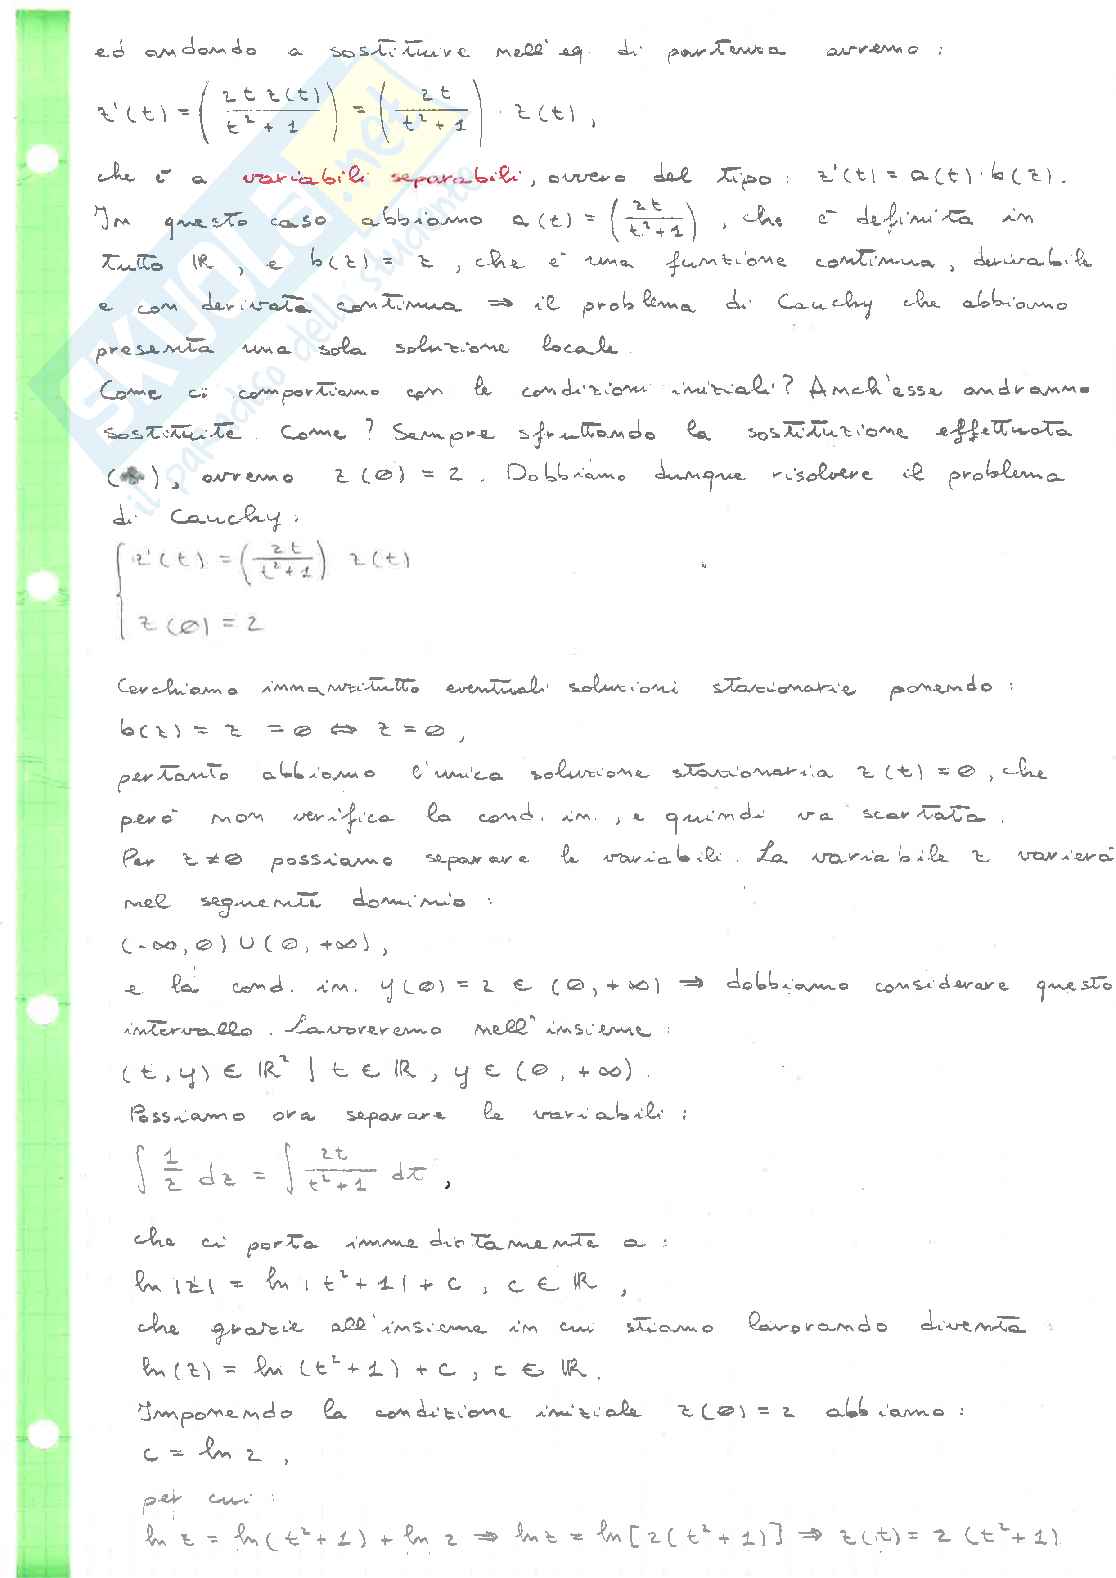 ed andando a sostituire nell'eq. di partenza avremo :
z'(t) = (2t z(t) / t²+1) = (2t / t²+1) · z(t) ,
che è a variabili separabili, ovvero del tipo : z'(t) = a(t) · b(z).
In questo caso abbiamo a(t) = (2t / t²+1) , che è definita in
tutto ℝ , e b(z) = z , che è una funzione continua, derivabile
e con derivata continua ⇒ il problema di Cauchy che abbiamo
presenta una sola soluzione locale.
Come ci comportiamo con le condizioni iniziali? Anch'esse andranno
sostituite. Come ? Sempre sfruttando la sostituzione effettuata
( ), avremo z(0) = 2 . Dobbiamo dunque risolvere il problema
di Cauchy :
{ z'(t) = (2t / t²+1) z(t)
z(0) = 2
Cerchiamo innanzitutto eventuali soluzioni stazionarie ponendo :
b(z) = z = 0 ⇔ z = 0 ,
pertanto abbiamo l'unica soluzione stazionaria z(t) = 0 , che
però non verifica la cond. in. , e quindi va scartata .
Per z ≠ 0 possiamo separare le variabili . La variabile z varierà
nel seguente dominio :
(-∞, 0) ∪ (0, +∞) ,
e la cond. in. y(0) = 2 ∈ (0, +∞) ⇒ dobbiamo considerare questo
intervallo . Lavoreremo nell'insieme :
(t, y) ∈ ℝ² | t ∈ ℝ , y ∈ (0, +∞) .
Possiamo ora separare le variabili :
∫ 1/z dz = ∫ 2t / t²+1 dt ,
che ci porta immediatamente a :
ln |z| = ln | t²+1 | + c , c ∈ ℝ ,
che grazie all'insieme in cui stiamo lavorando diventa :
ln (z) = ln (t²+1) + c , c ∈ ℝ .
Imponendo la condizione iniziale z(0) = 2 abbiamo :
c = ln 2 ,
per cui :
ln z = ln (t²+1) + ln 2 ⇒ ln z = ln [2(t²+1)] ⇒ z(t) = 2 (t²+1)
SKUOLA.net
il paradiso dello studente